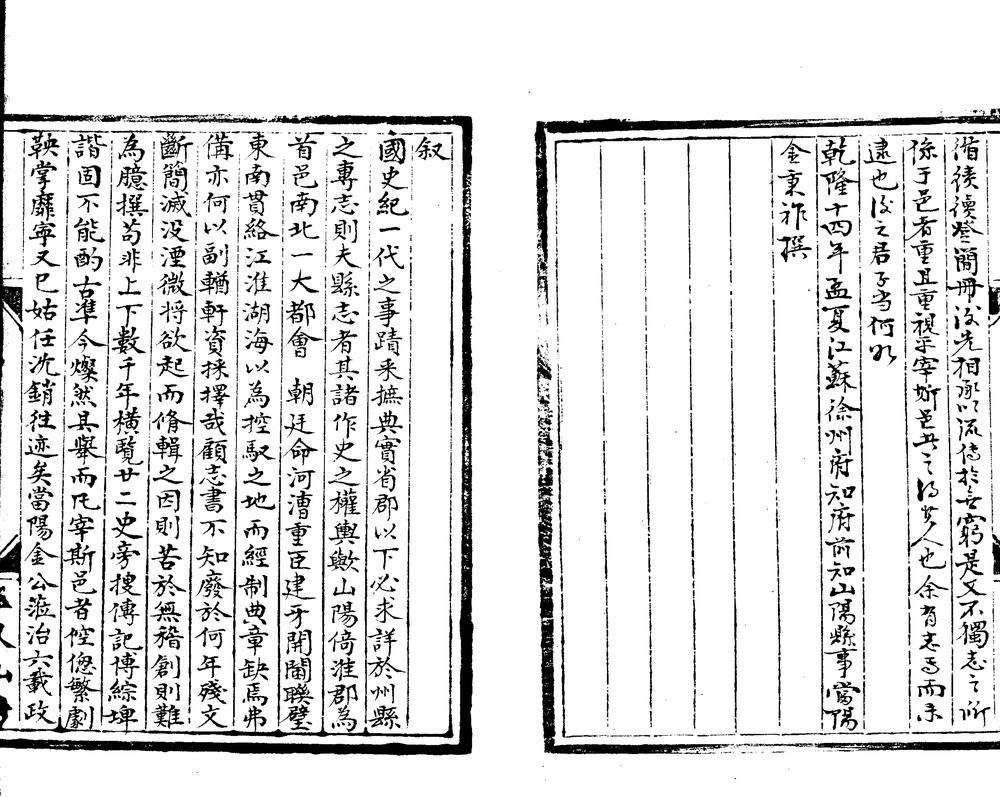 循續登簡冊後先相承以流傳於無窮是又不獨志之所
係于邑者重且重視乎宰斯邑者之得其人也余有志焉而未
逮也後之君子當何如
乾隆十四年孟夏江蘇徐州府知府前知山陽縣事當陽
金秉祚撰
叙
國史紀一代之事蹟采摭典實省郡以下必求詳於州縣
之專志則夫縣志者其諸作史之權輿歟山陽倚淮郡為
首邑南北一大都會 朝廷命河漕重臣建牙開閫聯璧
東南貫絡江淮湖海以為控馭之地而經制典章缺焉弗
備亦何以副輶軒資採擇哉顧志書不知廢於何年殘文
斷簡滅没湮微将欲起而脩輯之因則苦於無稽創則難
為臆撰苟非上下數千年横覧廿二史旁搜傳記博綜埤
諧固不能酌古準今燦然具舉而凡宰斯邑者倥偬繁劇
鞅掌靡寧又已姑任沈銷往迹矣當陽金公涖治六載政